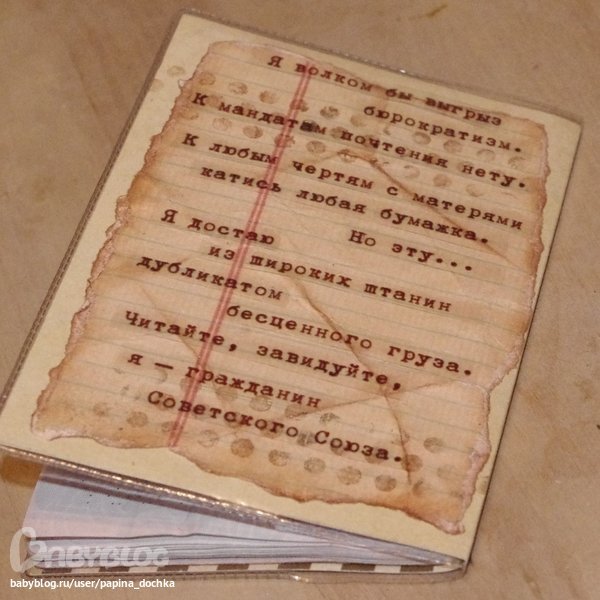 Я волком бы выгрыз
бюрократизм.
К мандатам почтения нету.
К любым чертям с матерями
катись любая бумажка.
Но эту...
Я достаю
из широких штанин
дубликатом
бесценного груза.
Читайте, завидуйте,
я — гражданин
Советского Союза.
BABYBLOG
babyblog.ru/user/papina_dochka